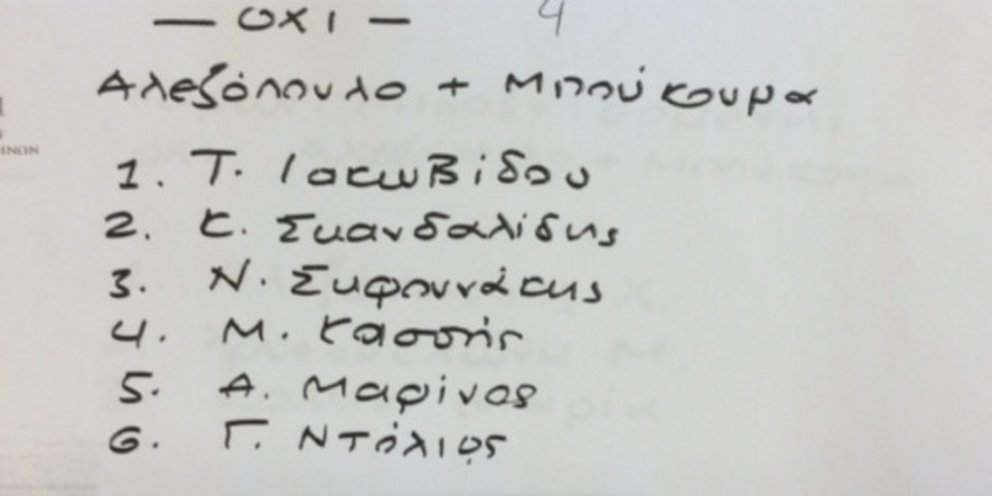 — ΟΧΙ — 4
Αλεξόπουλο + Μπούκουρα
1. Τ. Ιακωβίδου
2. Κ. Σκανδαλίδης
3. Ν. Σηφουνάκης
4. Μ. Κασσής
5. Α. Μαρίνος
6. Γ. Ντόλιος